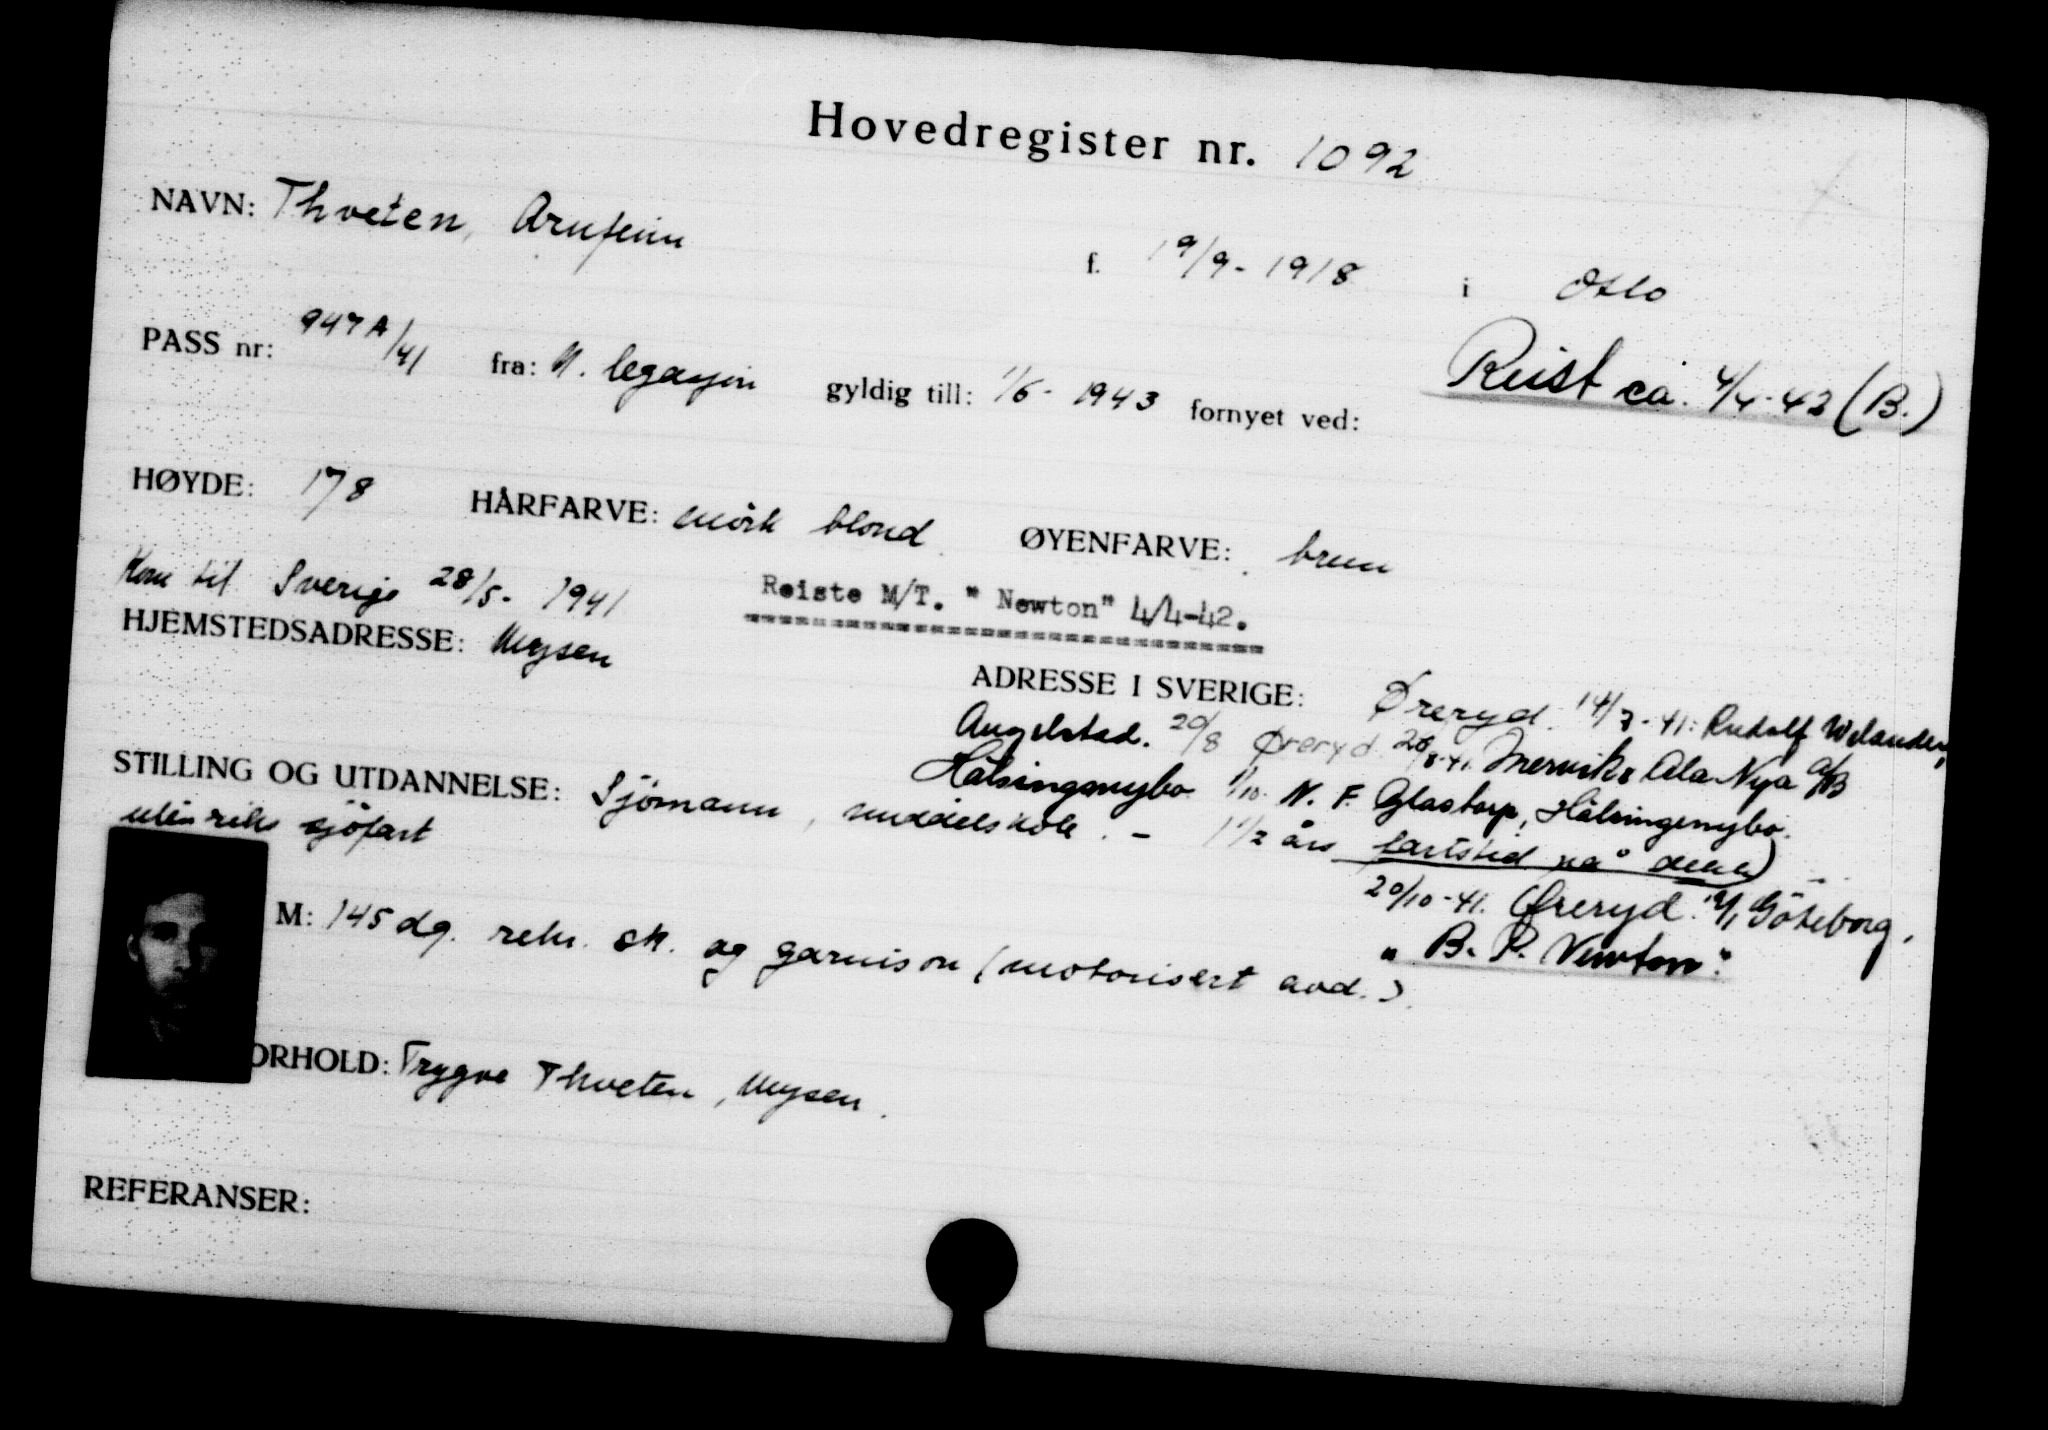 Hovedregister nr. 1092
NAVN: Thveten, Arnfinn f. 19/9-1918 i Oslo
PASS nr: 947A/41 fra: N. legasjon gyldig till: 1/6-1943 fornyet ved:
Reist ca. 4/4-42 (B.)
HØYDE: 178 HÅRFARVE: mörk blond ØYENFARVE: brun
Kom til Sverige 28/5-1941
Reiste M/T. "Newton" 4/4-42.
HJEMSTEDSADRESSE: Mysen
ADRESSE I SVERIGE: Øreryd. 14/7-41: Rudolf Welander,
Angelstad. 20/8 Øreryd. 28/8-41. Ala Nya a/B
Hälsingenybo 1/10. N. F. Glastorp, Hälsingenybo.
STILLING OG UTDANNELSE: Sjömann, middelskole. - 1 1/2 års fartstid på dekk
utenriks sjöfart
20/10-41. Øreryd. Göteborg.
"B. P. Newton".
M: 145 dg. rekr. sk. og garnison (motorisert avd.)
ORHOLD: Trygve Thveten, Mysen.
REFERANSER: